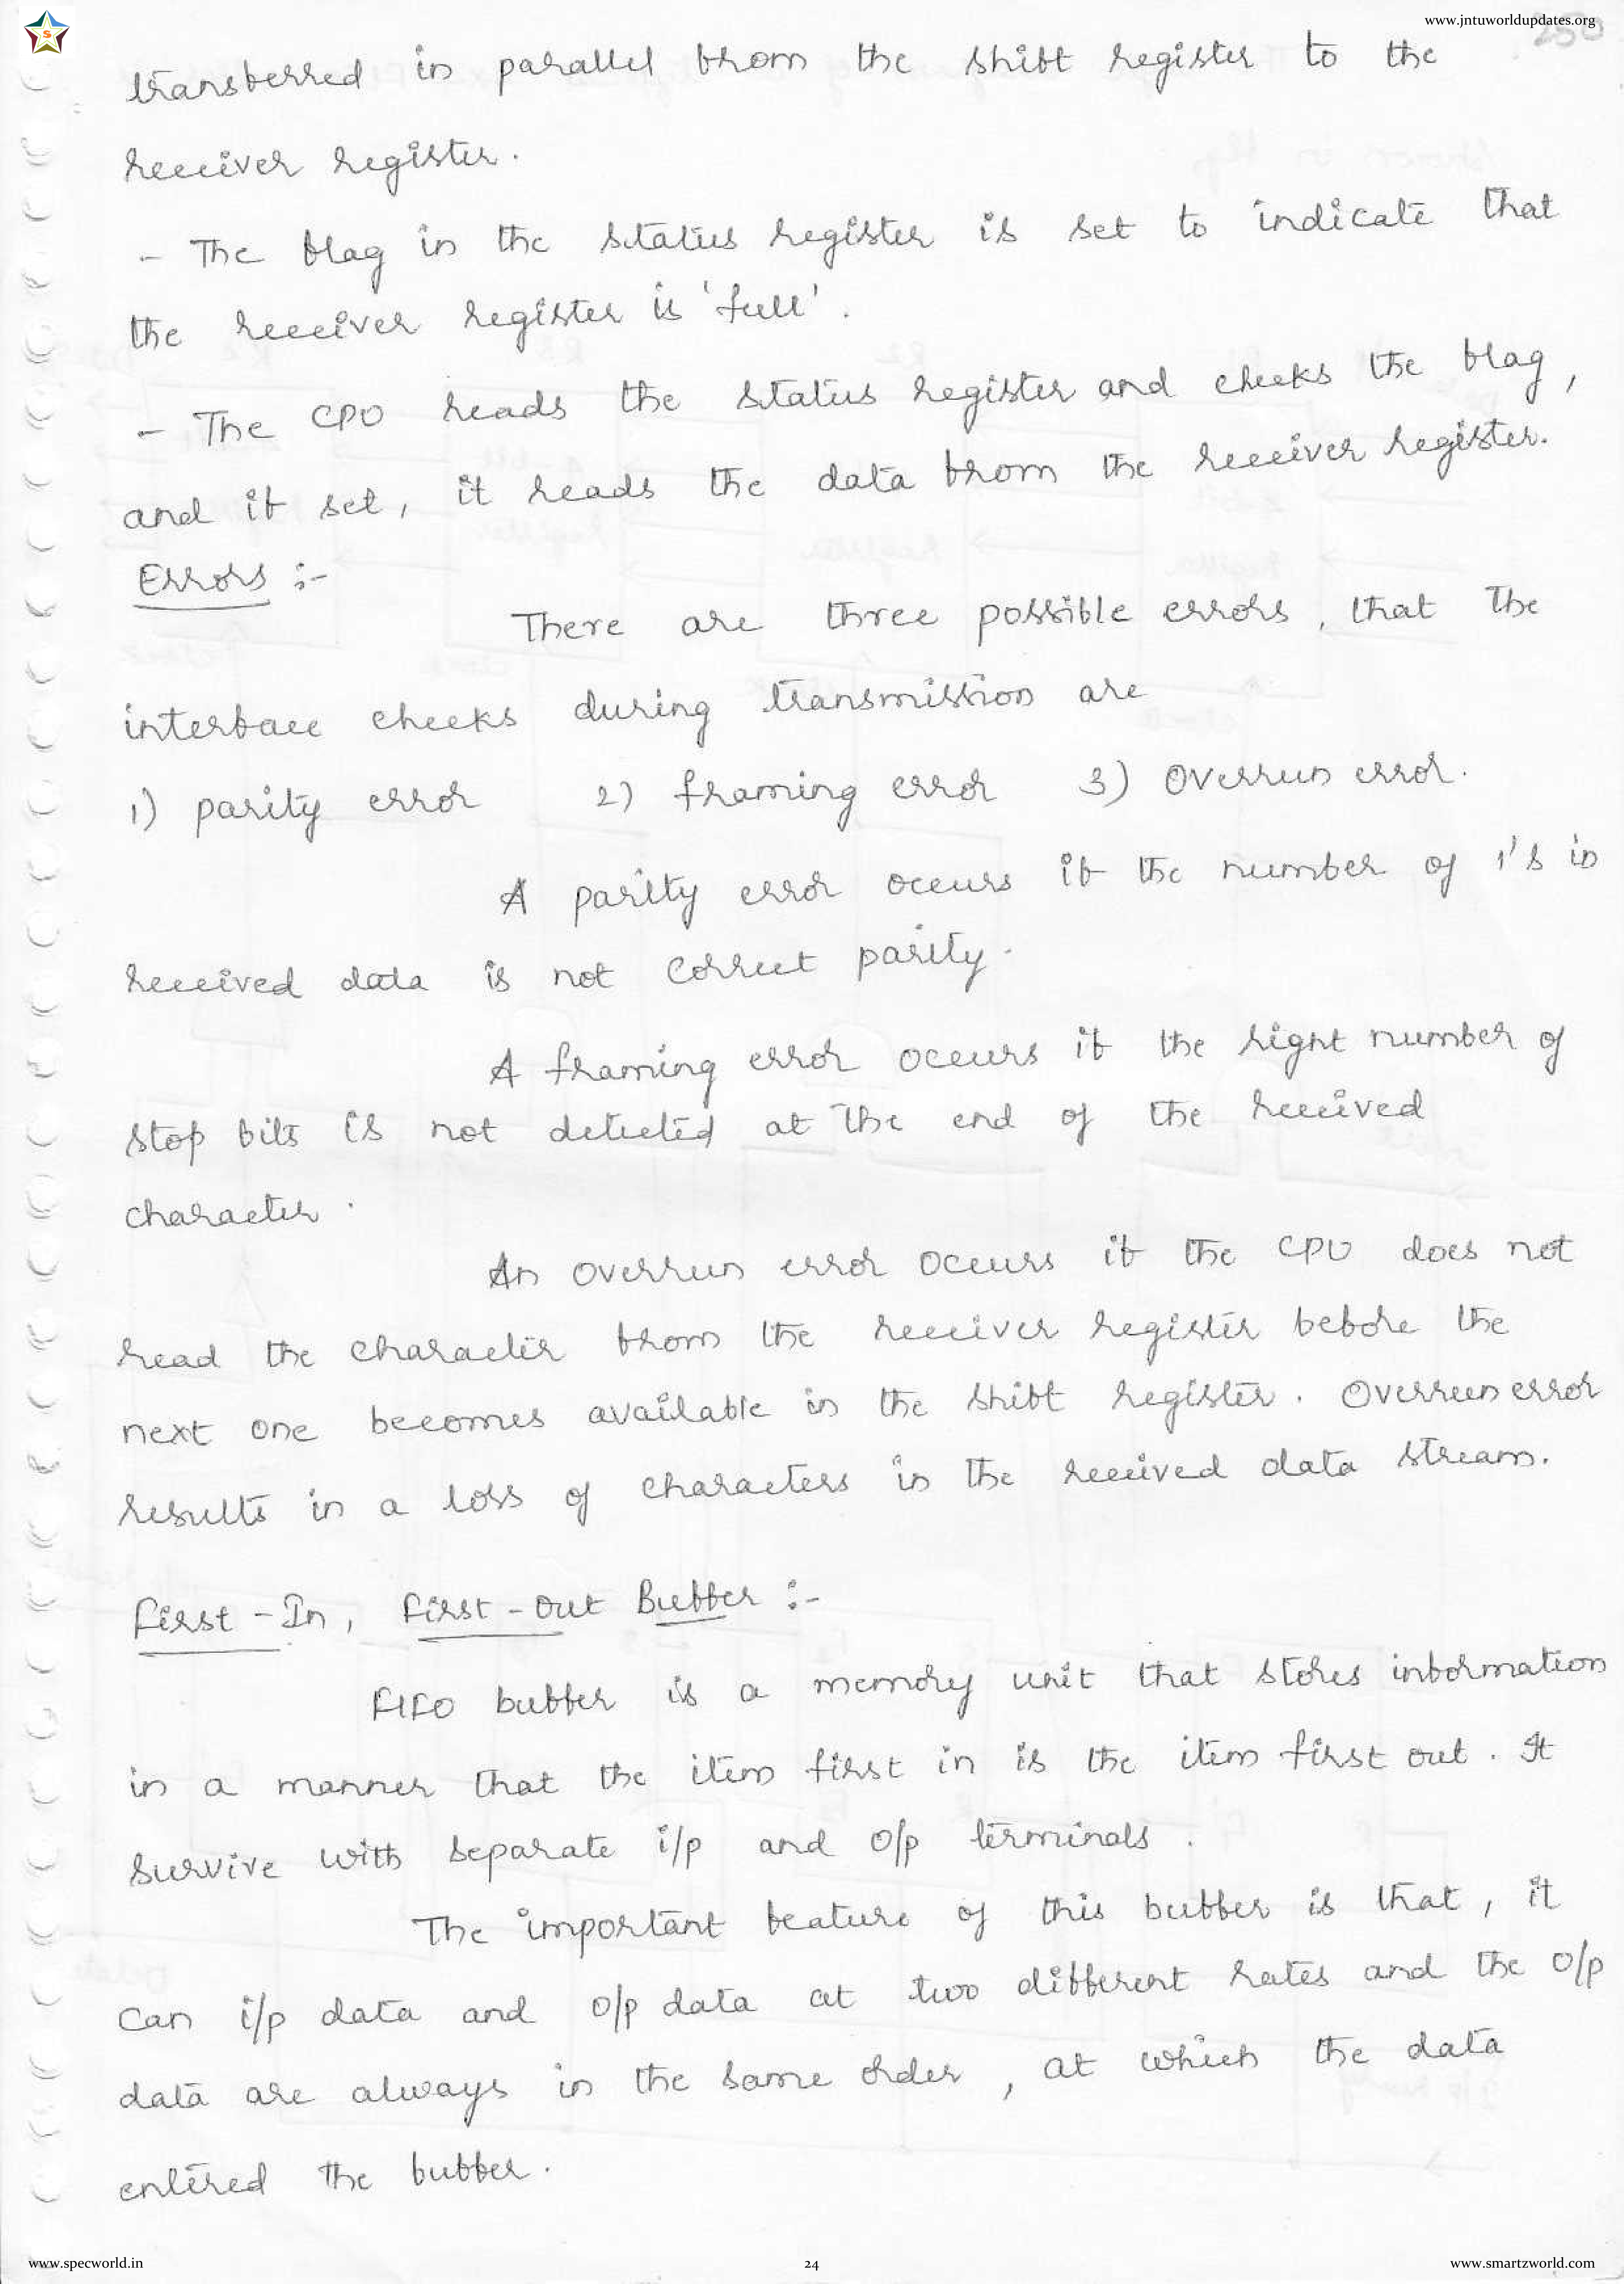 www.jntuworldupdates.org
250
transferred in parallel from the shift register to the
receiver register.
- The flag in the status register is set to indicate that
the receiver register is 'full'.
- The CPU reads the status register and checks the flag,
and if set, it reads the data from the receiver register.
Errors :-
There are three possible errors, that the
interface checks during transmission are
1) parity error 2) framing error 3) Overrun error.
A parity error occurs if the number of 1's in
received data is not correct parity.
A framing error occurs if the right number of
stop bits is not detected at the end of the received
character.
An overrun error occurs if the CPU does not
read the character from the receiver register before the
next one becomes available in the shift register. Overrun error
results in a loss of characters in the received data stream.
First-In, First-Out Buffer :-
FIFO buffer is a memory unit that stores information
in a manner that the item first in is the item first out. It
survive with separate i/p and o/p terminals.
The important feature of this buffer is that, it
can i/p data and o/p data at two different rates and the o/p
data are always in the same order, at which the data
entered the buffer.
www.specworld.in
24
www.smartzworld.com